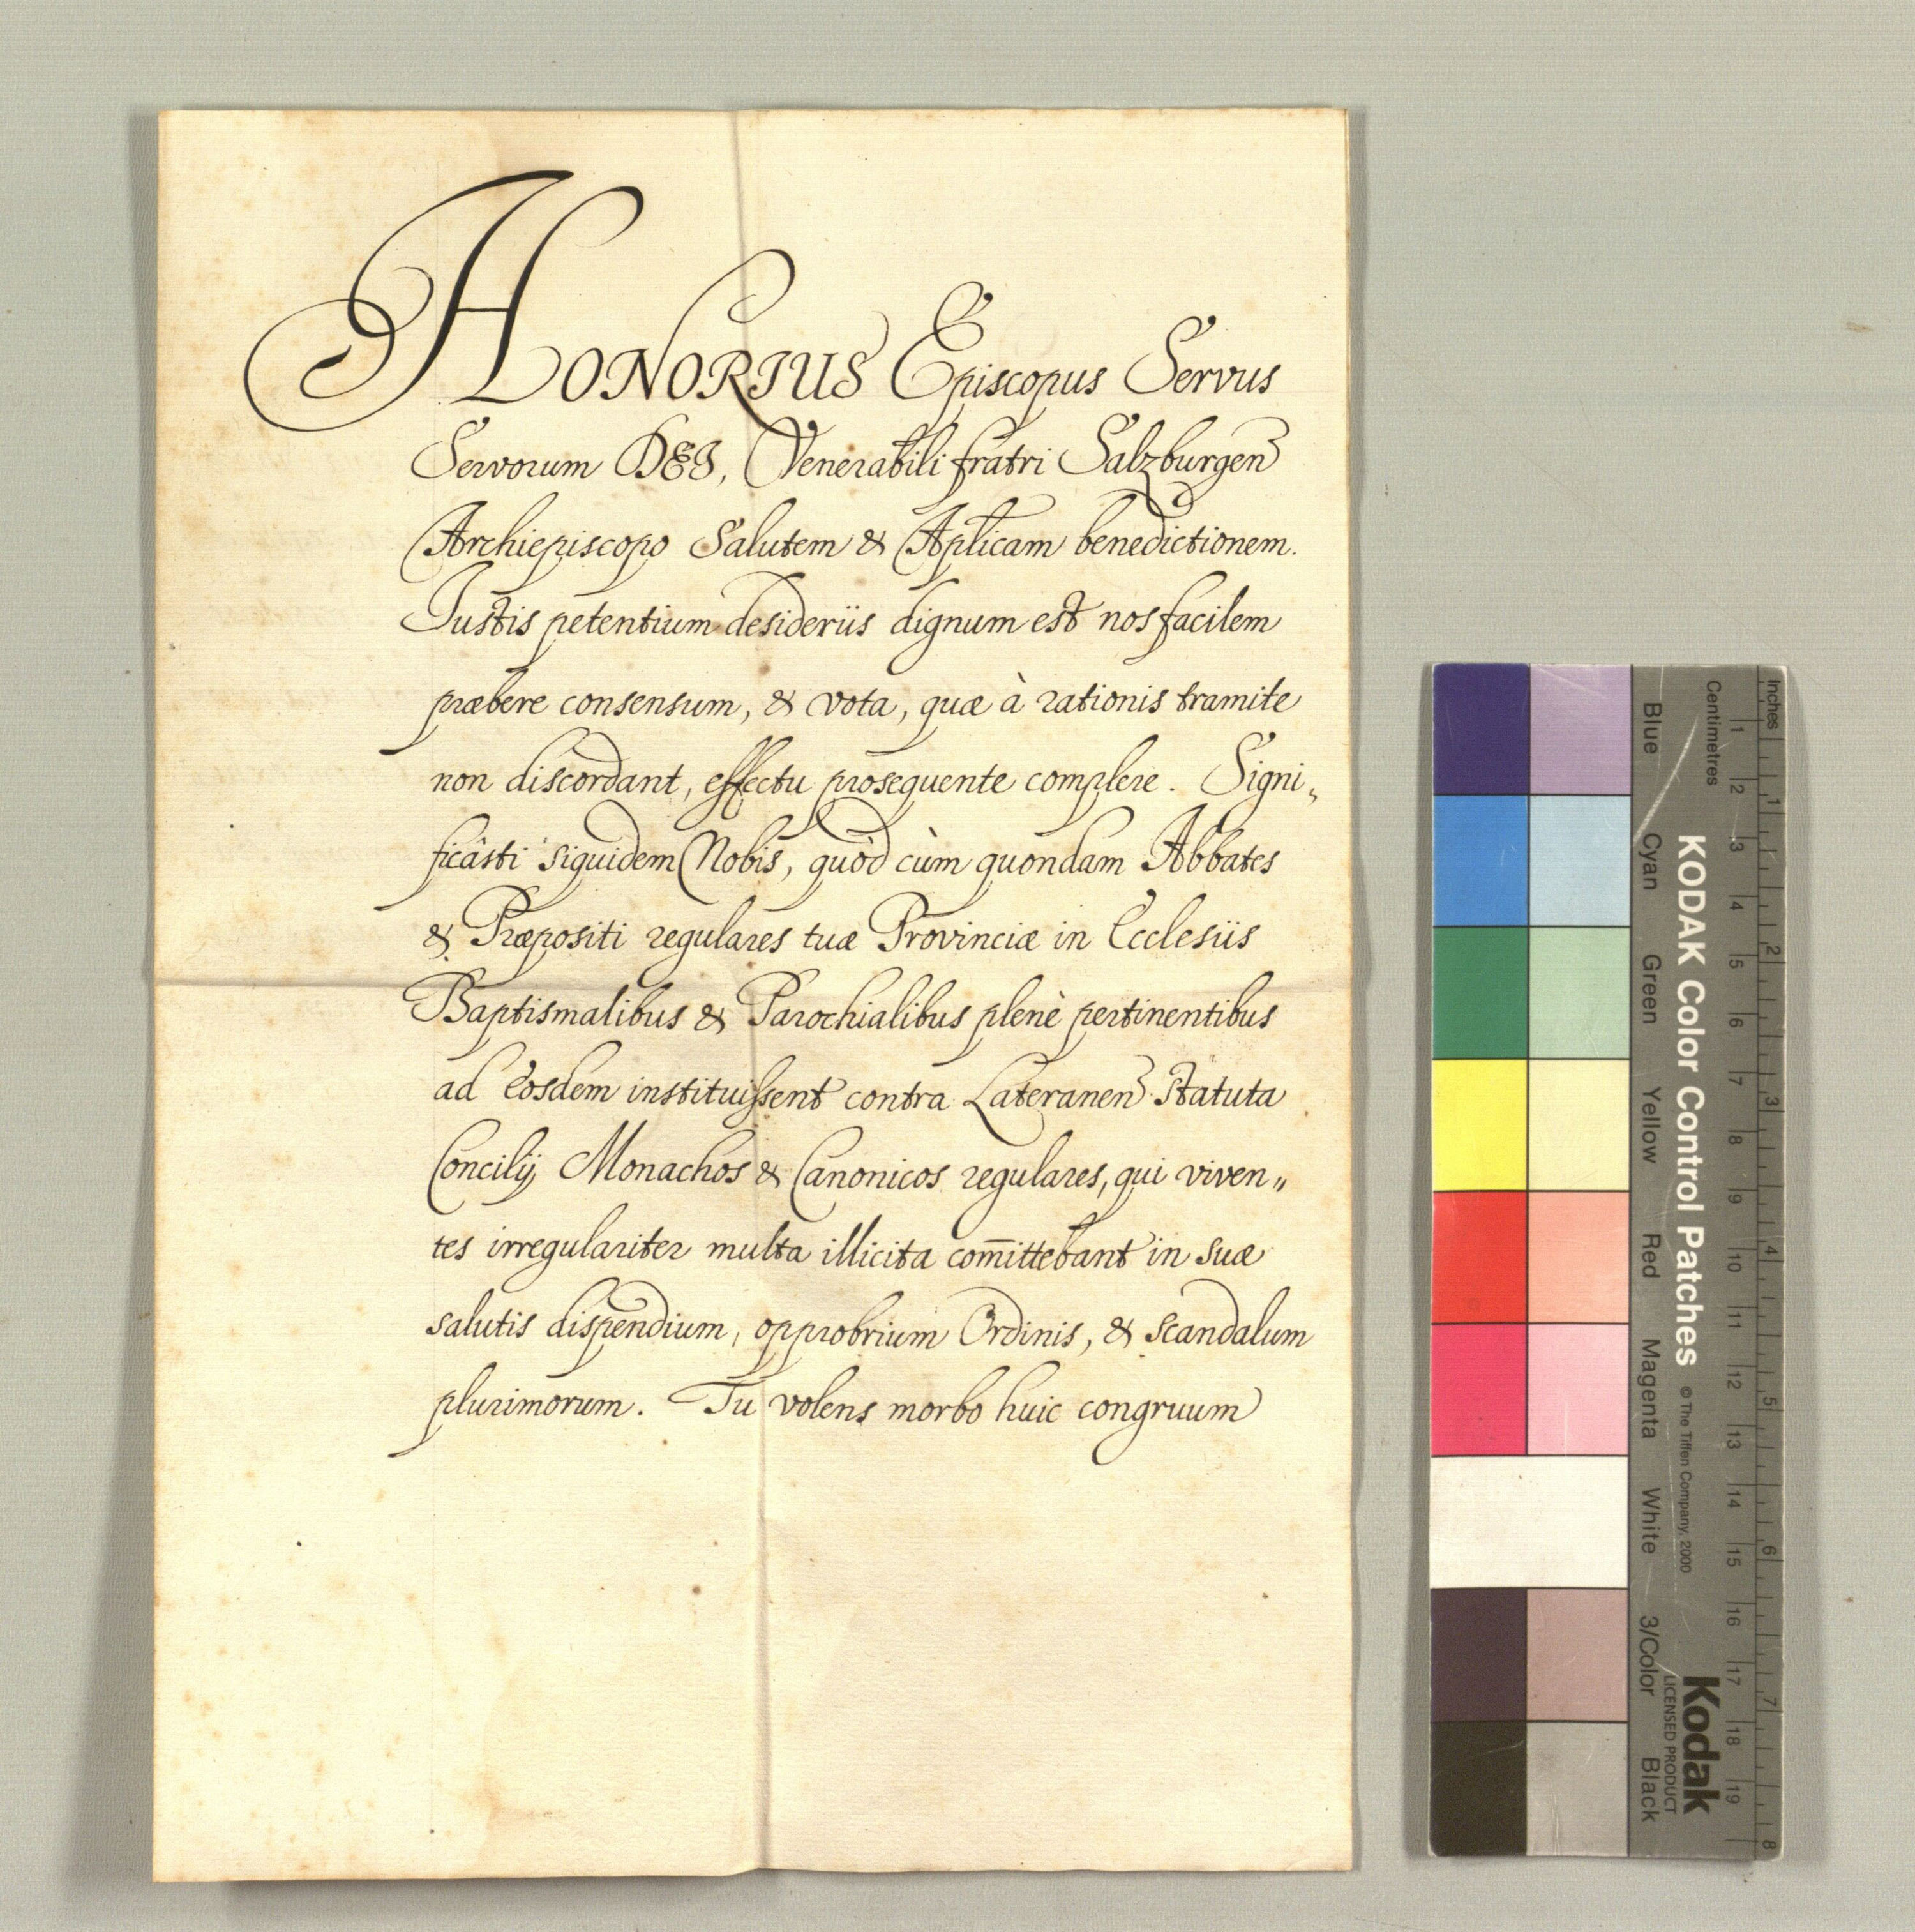 HONORIUS Episcopus Servus
Servorum DEI, Venerabili fratri Salzburgen
Archiepiscopo Salutem & Aplicam benedictionem.
Iustis petentium desideriis dignum est nos facilem
præbere consensum, & vota, quæ à rationis tramite
non discordant, effectu prosequente complere. Signi„
ficâsti siquidem Nobis, quòd cùm quondam Abbates
& Præpositi regulares tuæ Provinciæ in Ecclesiis
Baptismalibus & Parochialibus plenè pertinentibus
ad Eosdem instituissent contra Lateranen Statuta
Concilij, Monachos & Canonicos regulares, qui viven„
tes irregulariter multa illicita com̄ittebant in suæ
salutis dispendium, opprobrium Ordinis, & scandalum
plurimorum. Tu volens morbo huic congruum
Inches 1 2 3 4 5 6 7 8
Centimetres 1 2 3 4 5 6 7 8 9 10 11 12 13 14 15 16 17 18 19
KODAK Color Control Patches © The Tiffen Company, 2000 Kodak
LICENSED PRODUCT
Blue Cyan Green Yellow Red Magenta White 3/Color Black